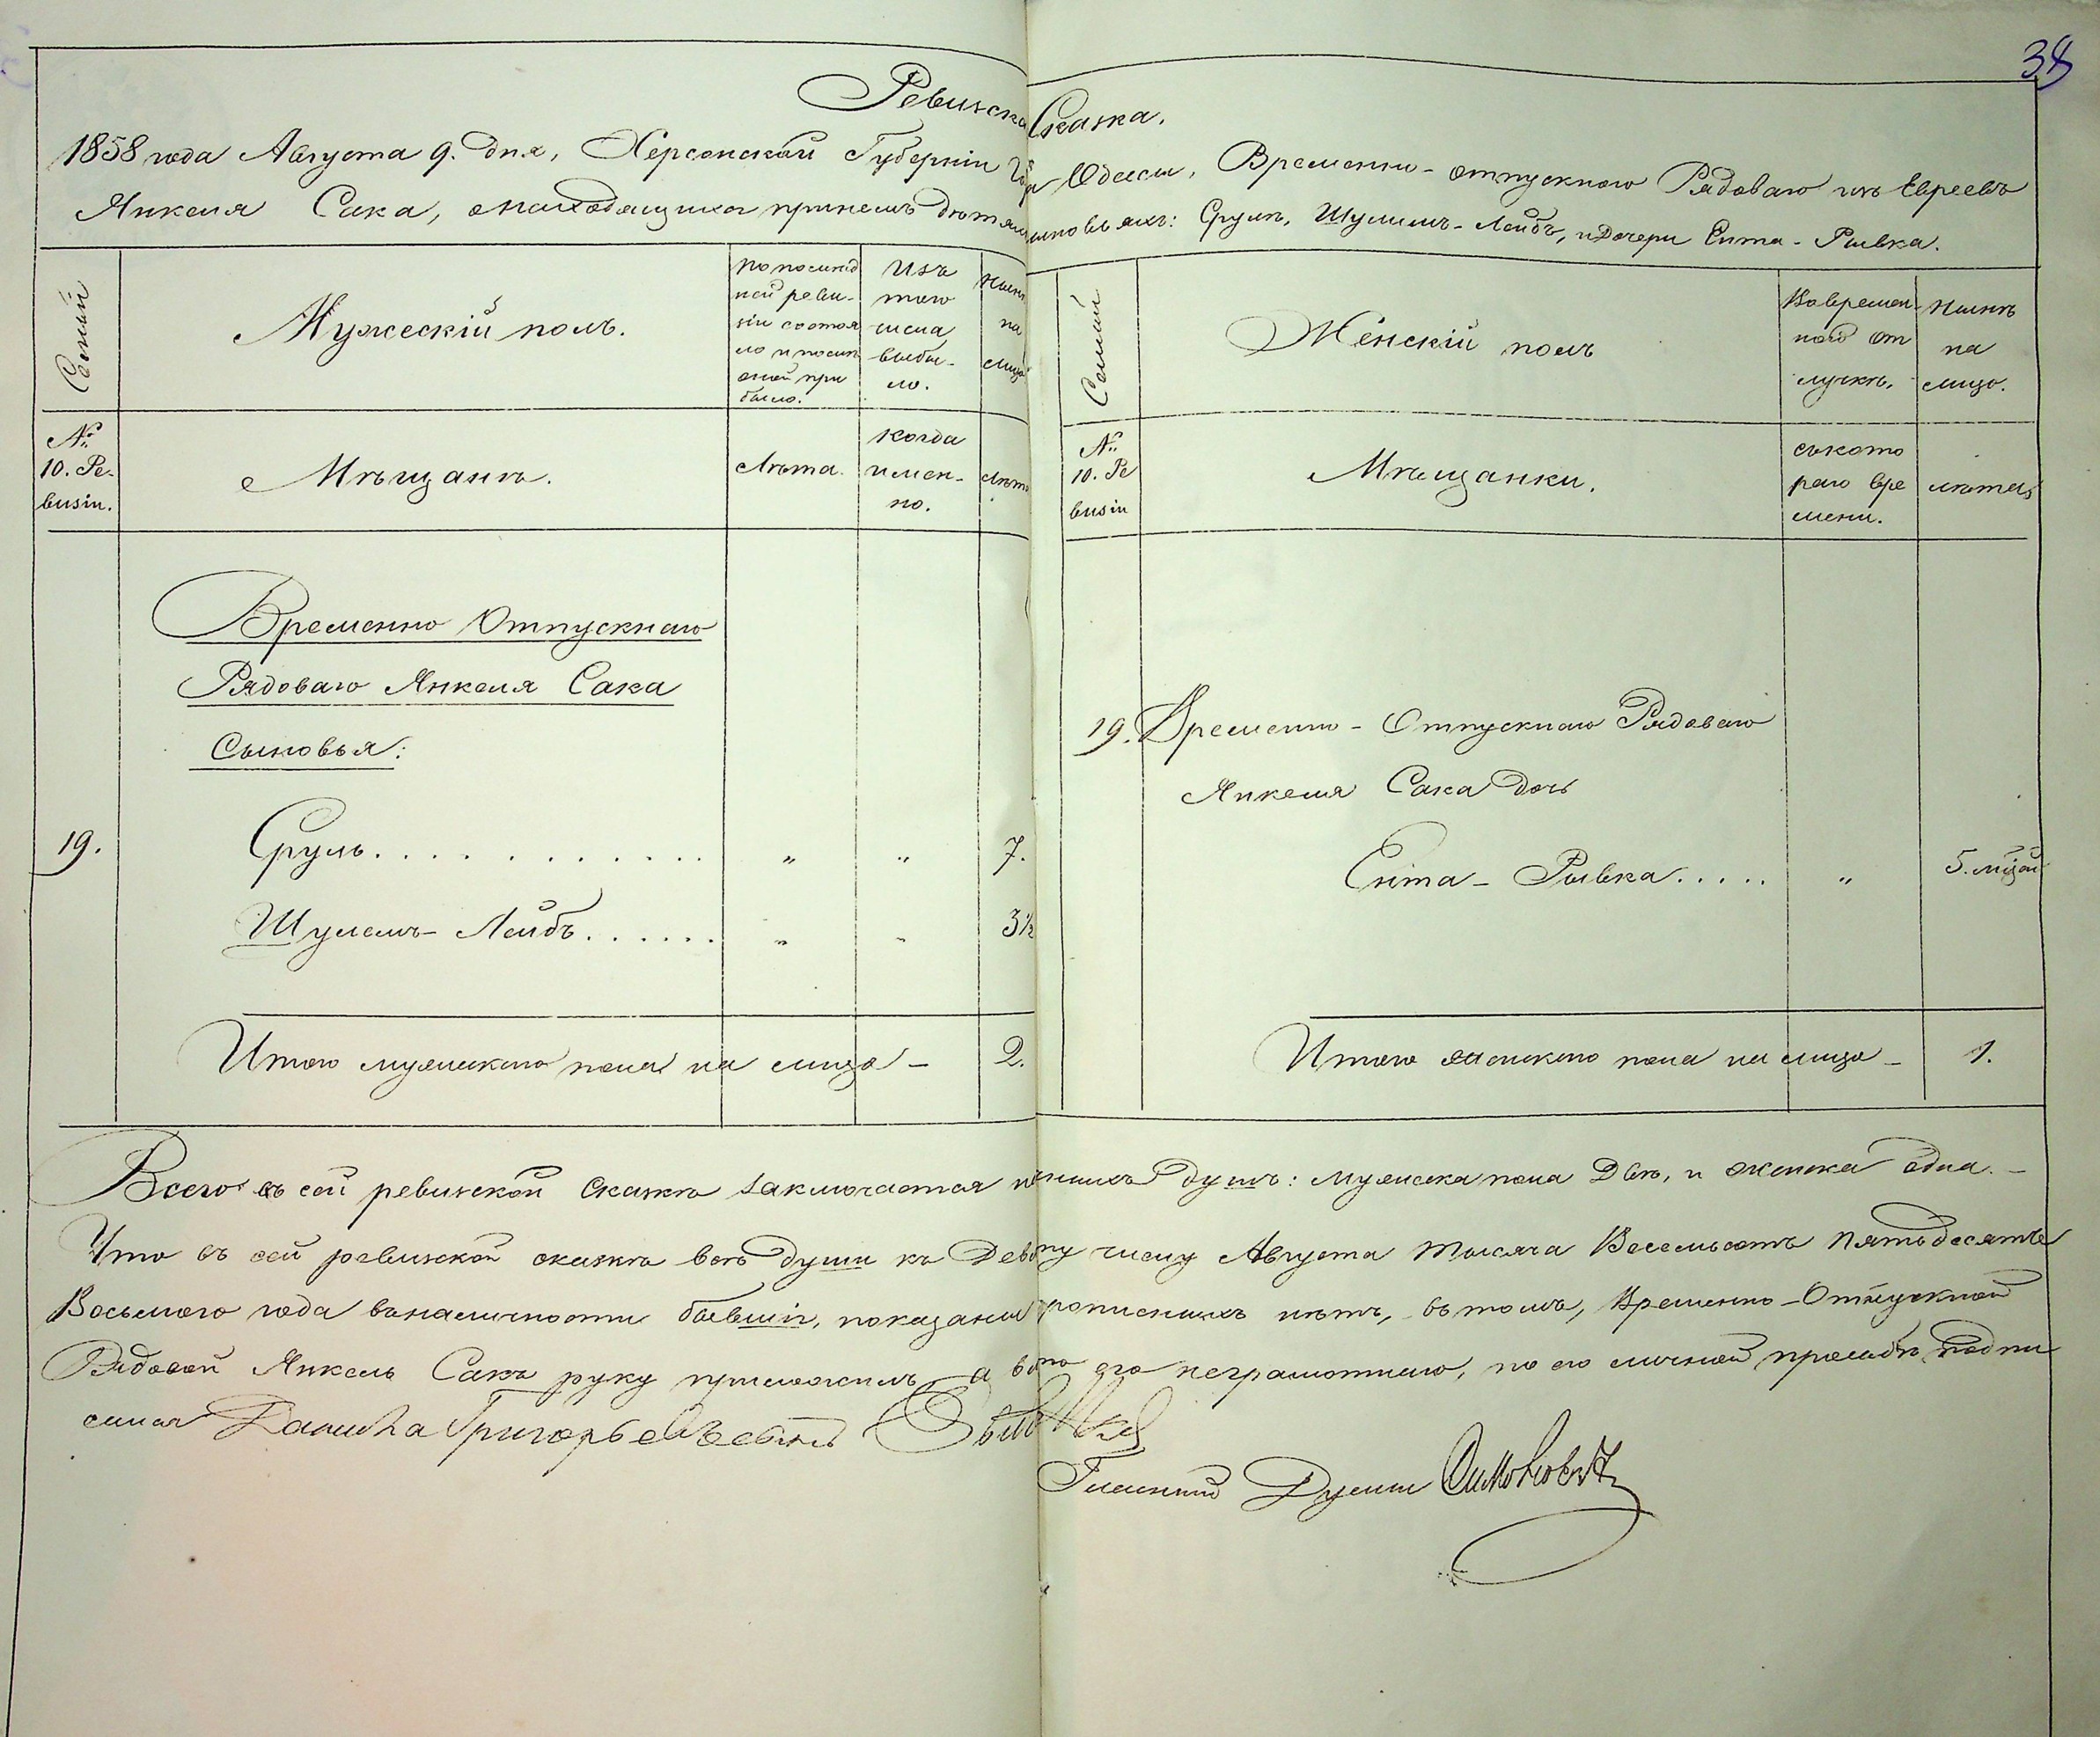 38
Ревизска Сказка.
1858 года Августа 9. дня, Херсонской Губерніи Города Одессы, Временно-отпускнаго Рядоваго изъ Евреевъ
Янкеля Сака, о находящихся при немъ дѣтяхъ сыновьяхъ: Сруль, Шулимъ-Лейбъ, и Дочери Ента-Рывка.
Семьи
Мужескій полъ.
по послѣд
ней реви-
зіи состоя
ло и послѣ
оной при
было.
Изъ
того
числа
выбы-
ло.
Нынѣ
на
лицо
№
10. Ре-
визіи.
Мѣщанѣ.
Лѣта.
Когда
имен-
но.
Лѣта
Временно Отпускнаго
Рядоваго Янкеля Сака
Сыновья:
19.
Сруль . . . . . . . . . . . . " " 7.
Шулемъ-Лейбъ . . . . . . " " 3½
Итого мужескаго пола на лицо – 2.
Семьи
Женскій полъ
Во времен
ной от
лучкѣ,
Нынѣ
на
лицо.
№
10. Ре
визіи
Мѣщанки.
съ кото
раго вре
мени.
лѣта
19. Временно-Отпускнаго Рядоваго
Янкеля Сака дочь
Ента-Рывка . . . . . " 5. мѣся
Итого женскаго пола на лицо – 1.
Всего въ сей ревизской сказкѣ заключается наличныхъ душъ: мужеска пола Двѣ, и женска одна. –
Что въ сей ревизской сказкѣ всѣ души къ Девятому числу Августа тысяча Восемьсотъ пятьдесятъ
Восьмого года въ наличности бывшія, показаны и прописныхъ нѣтъ, въ томъ, Временно-Отпускной
Рядовой Янкель Сакъ руку приложилъ, а вмѣсто его неграмотнаго, по его личной прозьбѣ подпи
сался Данила Григорьевъ сынъ
Гласный Думы Симоновичъ